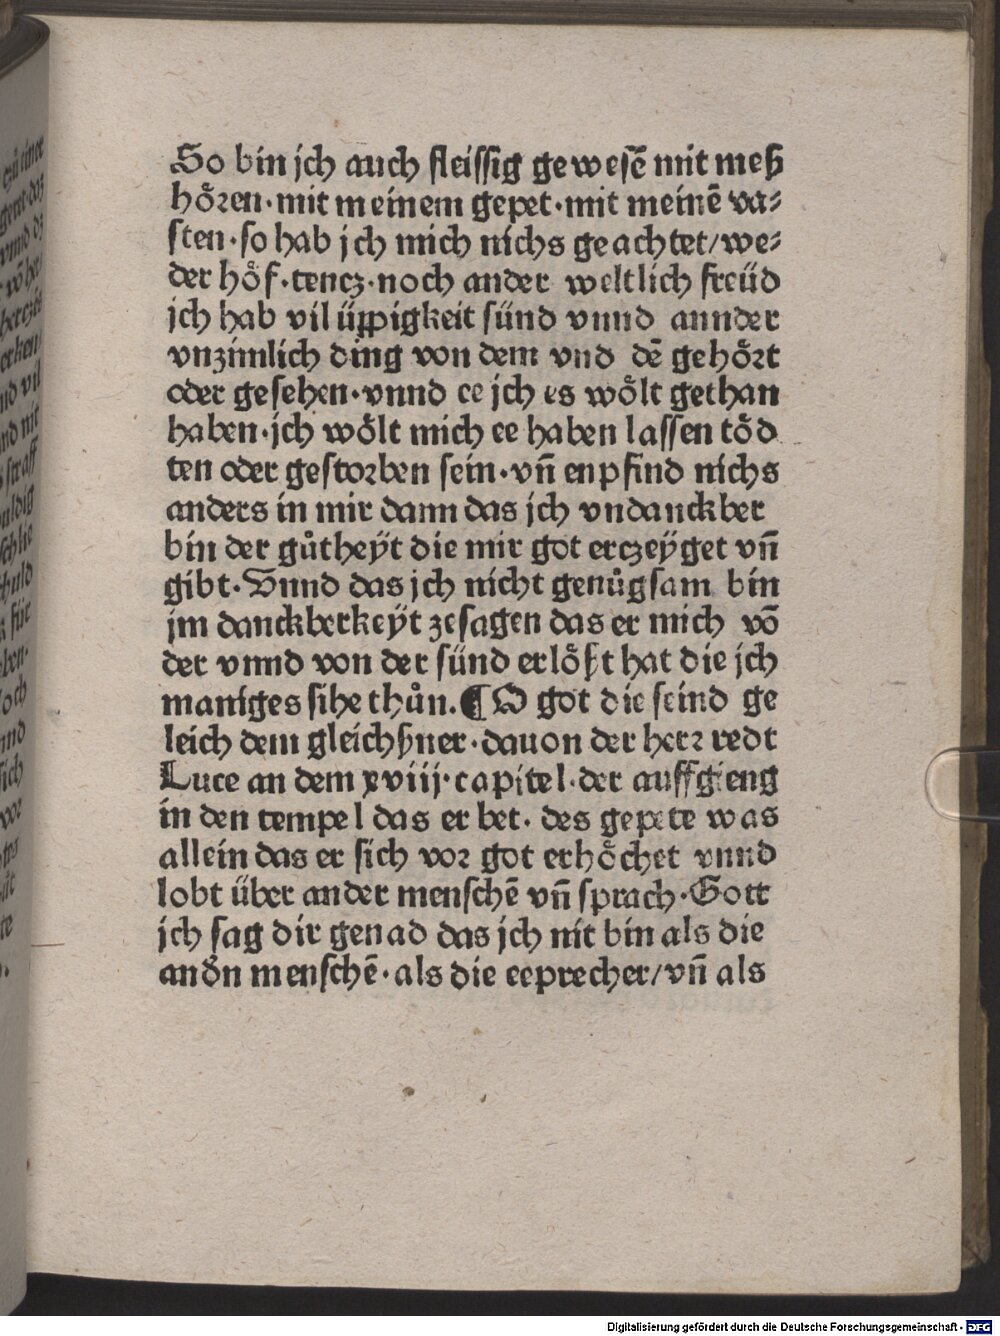 So bin jch auch fleissig gewesē mit meß
hören·mit meinem gepet·mit meinē va⸗
sten·so hab jch mich nichs geachtet/we⸗
der höf·tencz·noch ander weltlich freüd
jch hab vil üppigkeit sünd vnnd annder
vnzimlich ding von dem vnd dē gehört
oder gesehen·vnnd ee jch es wölt gethan
haben·jch wölt mich ee haben lassen töd
ten oder gestorben sein·vn̄ enpfind nichs
anders in mir dann das jch vndanckber
bin der gůtheÿt die mir got erczeÿget vn̄
gibt·Vnnd das jch nicht genůgsam bin
jm danckberkeÿt zesagen das er mich vō
der vnnd von der sünd erlößt hat die jch
maniges sihe thůn.¶O got die seind ge
leich dem gleichßner·dauon der herr redt
Luce an dem xviij·capitel·der auffgieng
in den tempel das er bet· des gepete was
allein das er sich vor got erhöchet vnnd
lobt über ander menschē vn̄ sprach·Gott
jch sag dir genad das jch nit bin als die
andn̄ menschē·als die eeprecher/vn̄ als
Digitalisierung gefördert durch die Deutsche Forschungsgemeinschaft - DFG